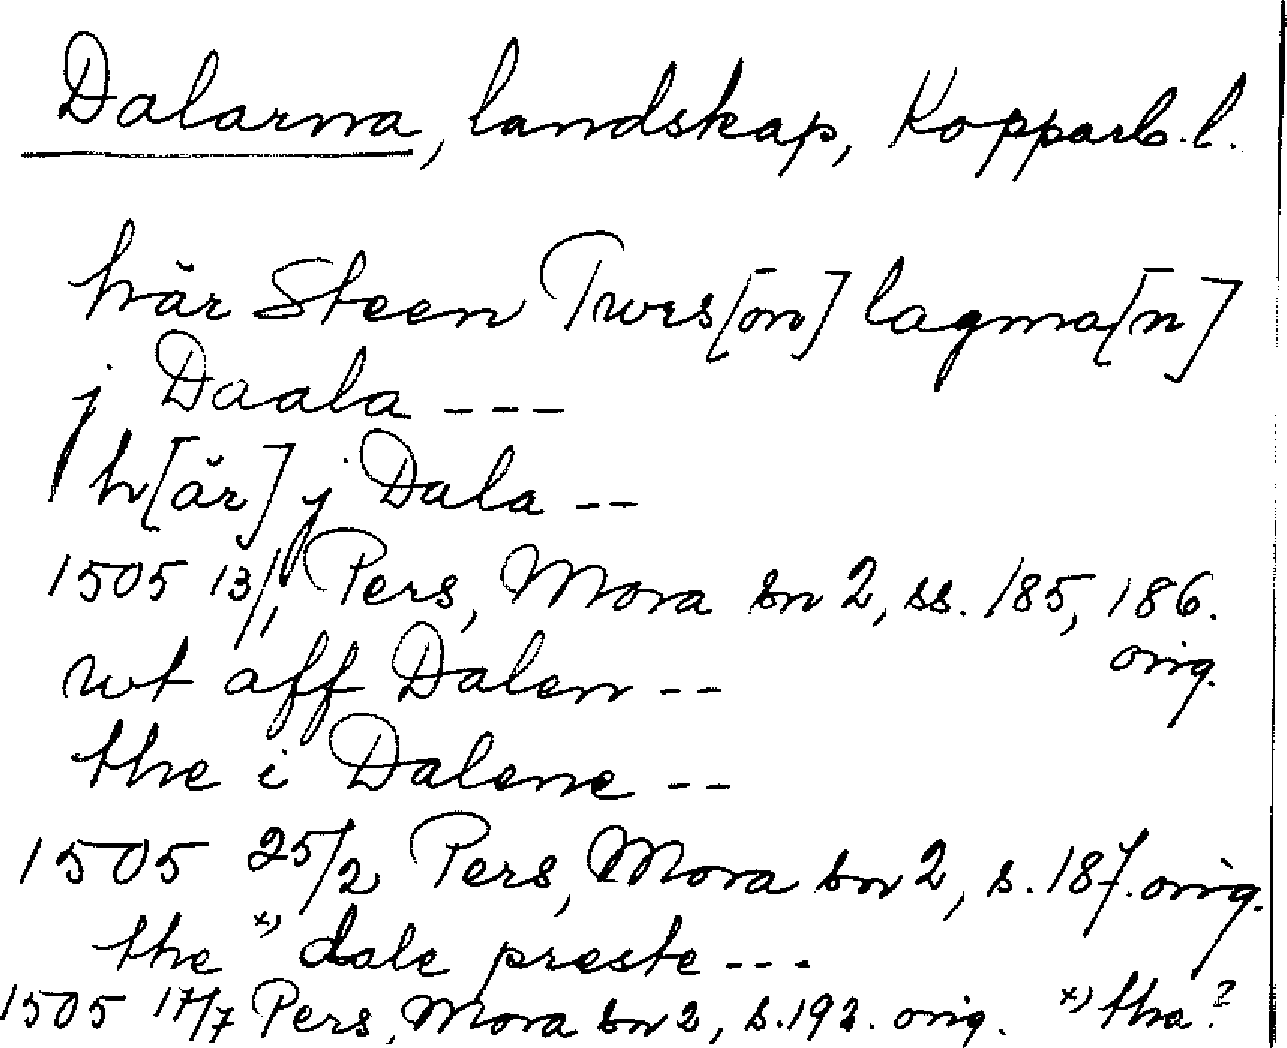 Dalarna, landskap, Kopparb. l.
hăr Steen Twrs[on] lagma[n]
j Daala ---
h[ăr] j Dala --
1505 13/1, Pers, Mora sn 2, ss. 185, 186.
orig.
wt aff Dalen --
the i Dalene --
1505 25/2 Pers, Mora sn 2, s. 187. orig.
the x) dale preste ---
1505 17/7 Pers, Mora sn 2, s. 192. orig. x) tha?